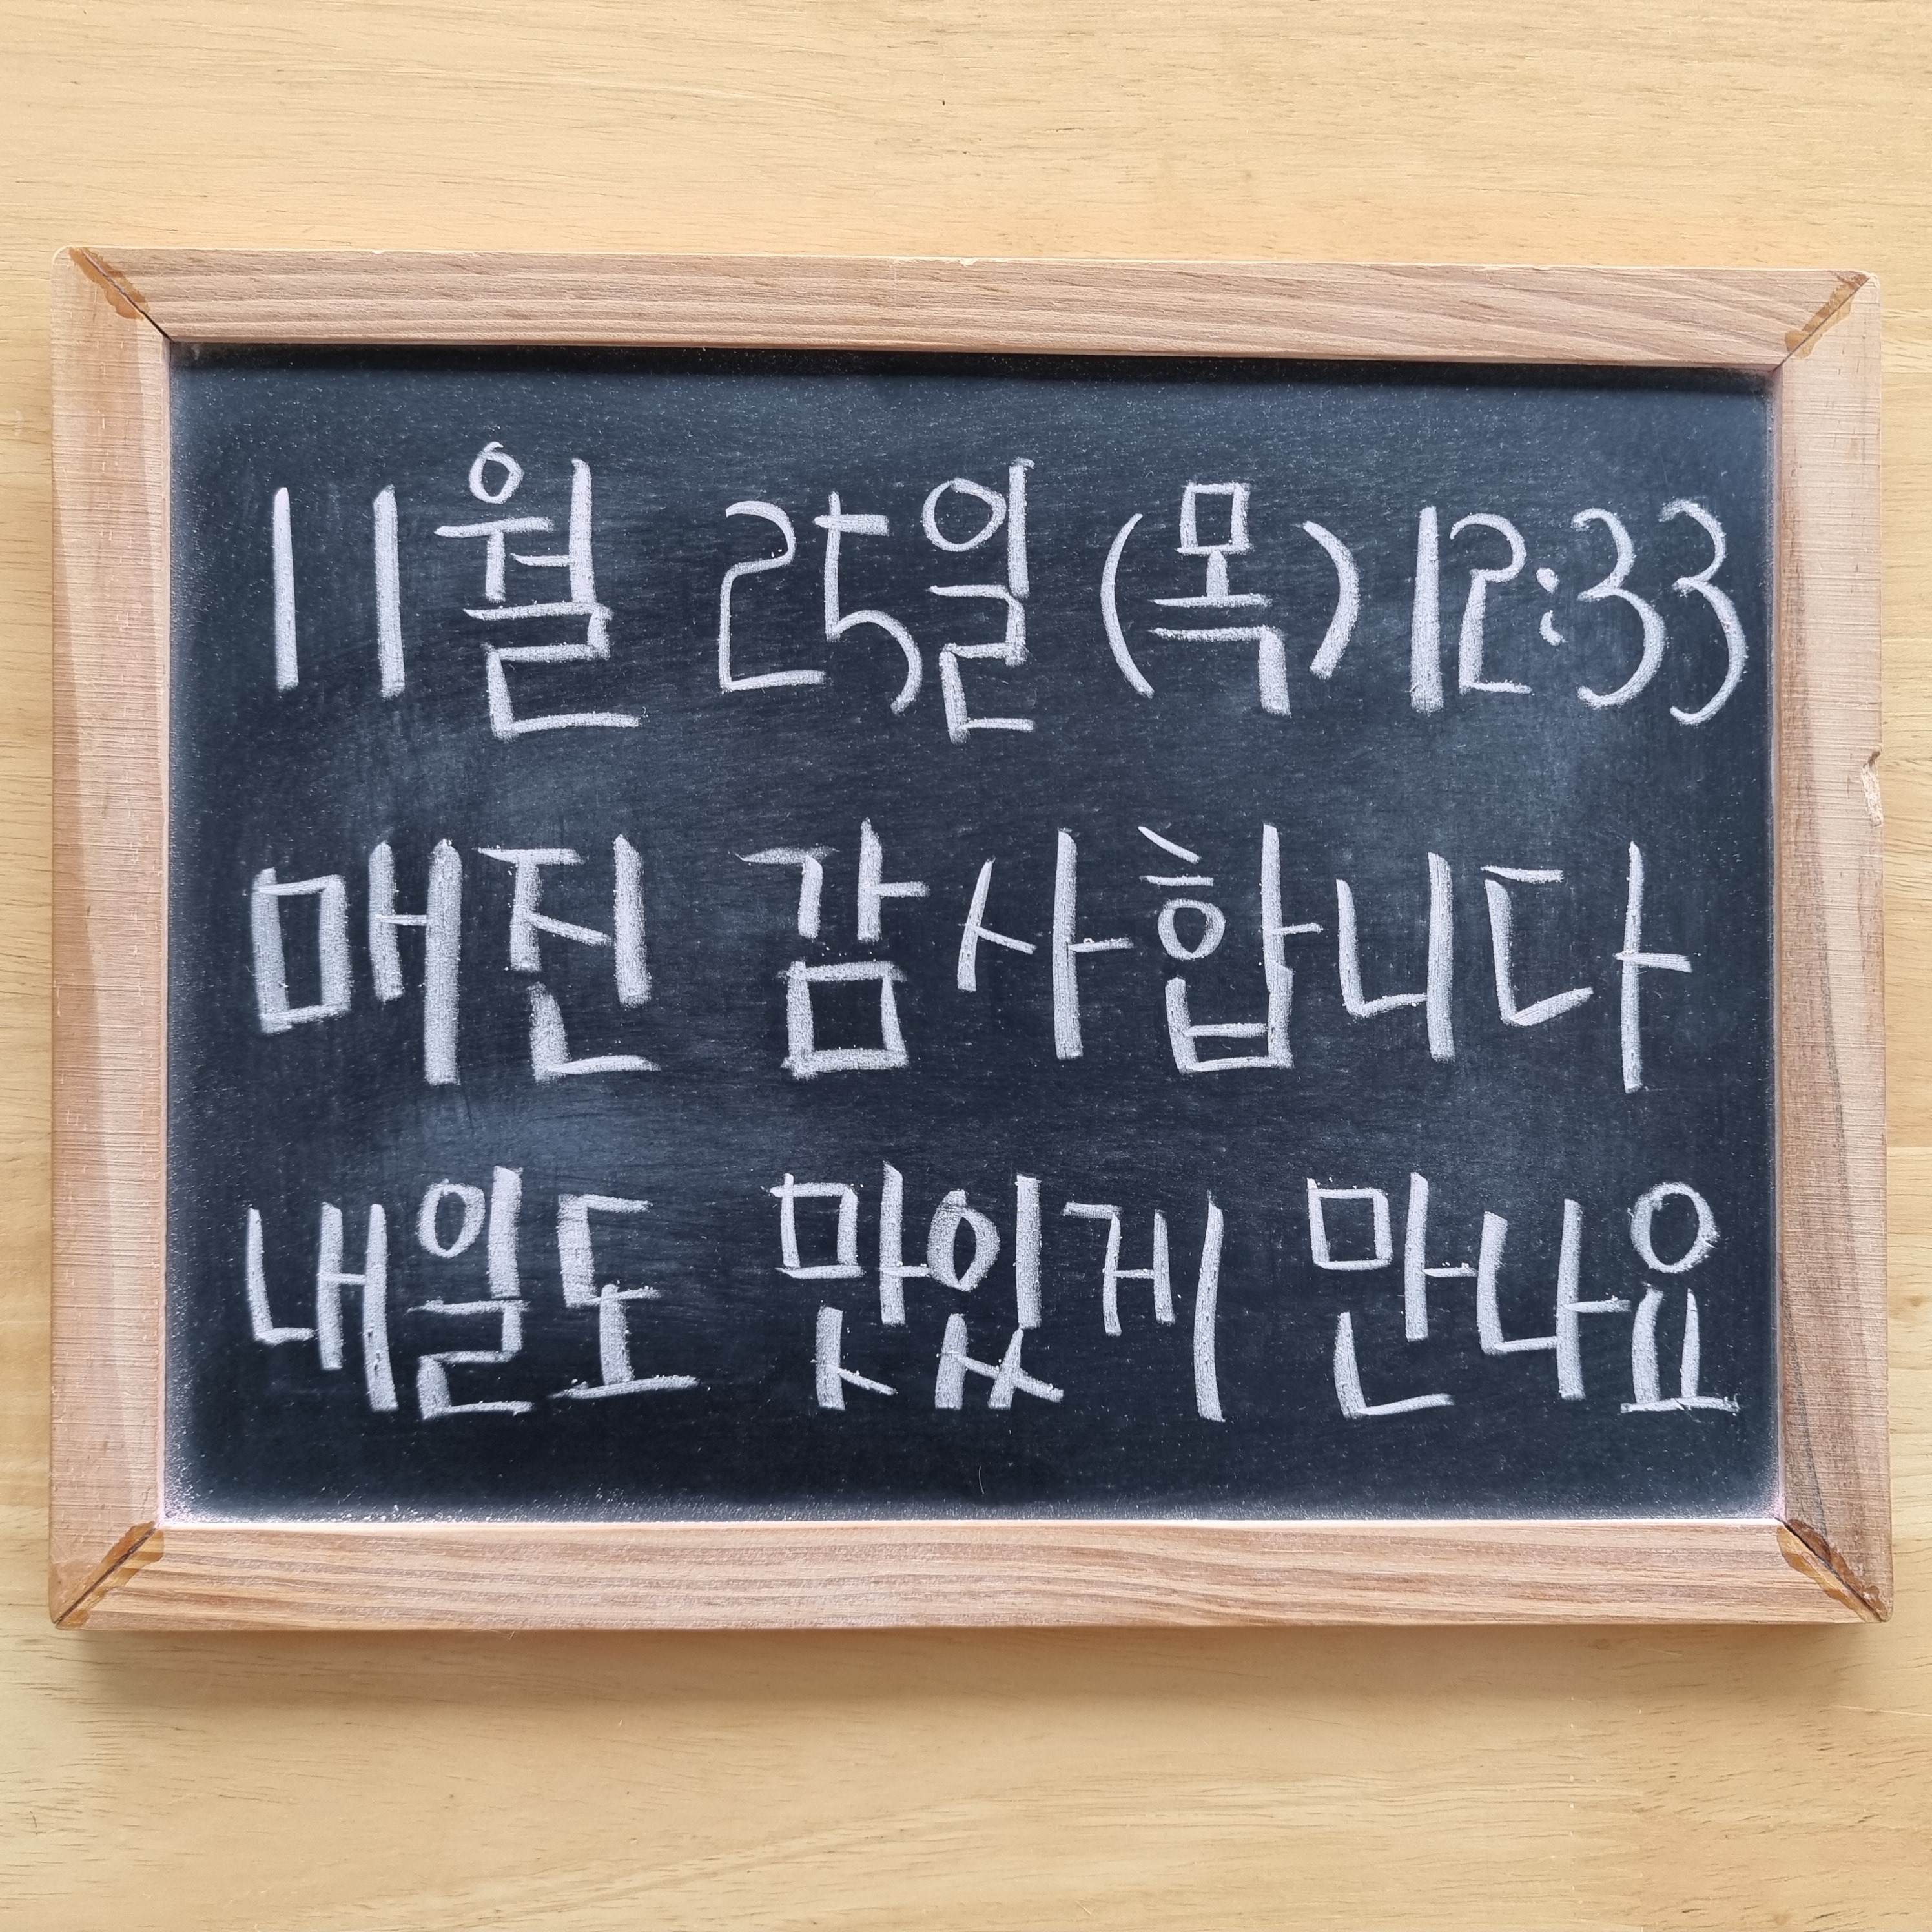 11월 25일 (목) 12:33
매진 감사합니다
내일도 맛있게 만나요